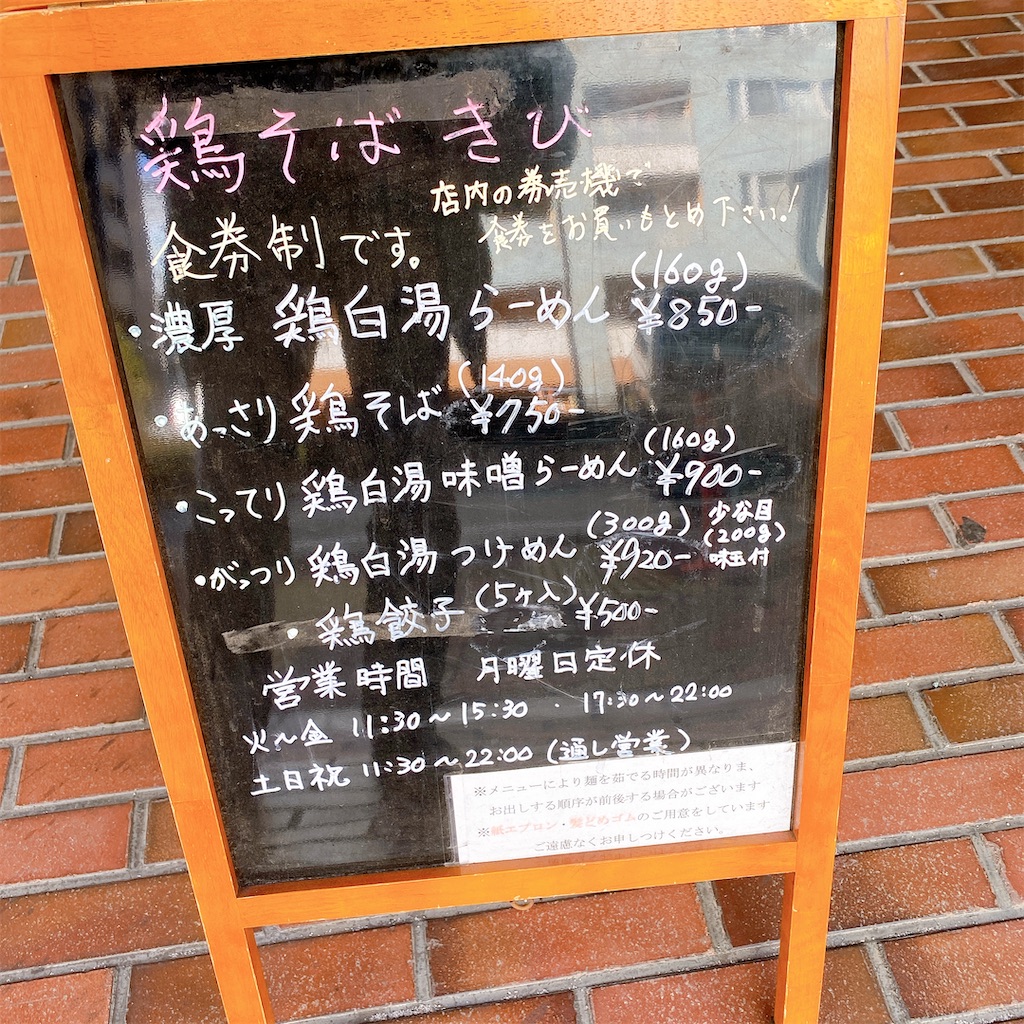 鶏そば きび
店内の券売機で
食券をお買いもとめ下さい!
食券制です。
(160g)
・濃厚 鶏白湯らーめん ¥850-
(140g)
・あっさり鶏そば ¥750-
(160g)
・こってり鶏白湯味噌らーめん ¥900-
(300g) 少な目
(200g)
・がっつり鶏白湯つけめん ¥920- 味玉付
・鶏餃子(5ヶ入)¥500-
営業時間 月曜日定休
火〜金 11:30〜15:30 ・ 17:30〜22:00
土日祝 11:30〜22:00(通し営業)
※メニューにより麺を茹でる時間が異なりま、
お出しする順序が前後する場合がございます
※紙エプロン・髪どめゴムのご用意をしています
ご遠慮なくお申しつけください。